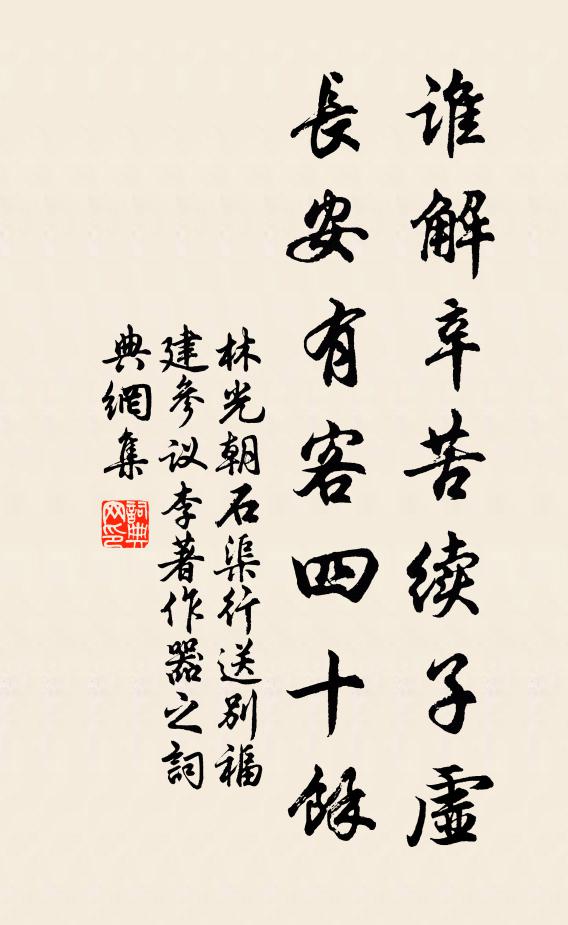 谁解辛苦续子虚
長安有客四十餘
林光朝石渠行送别福
建參议李著作器之詞
典網集
詞典
网印